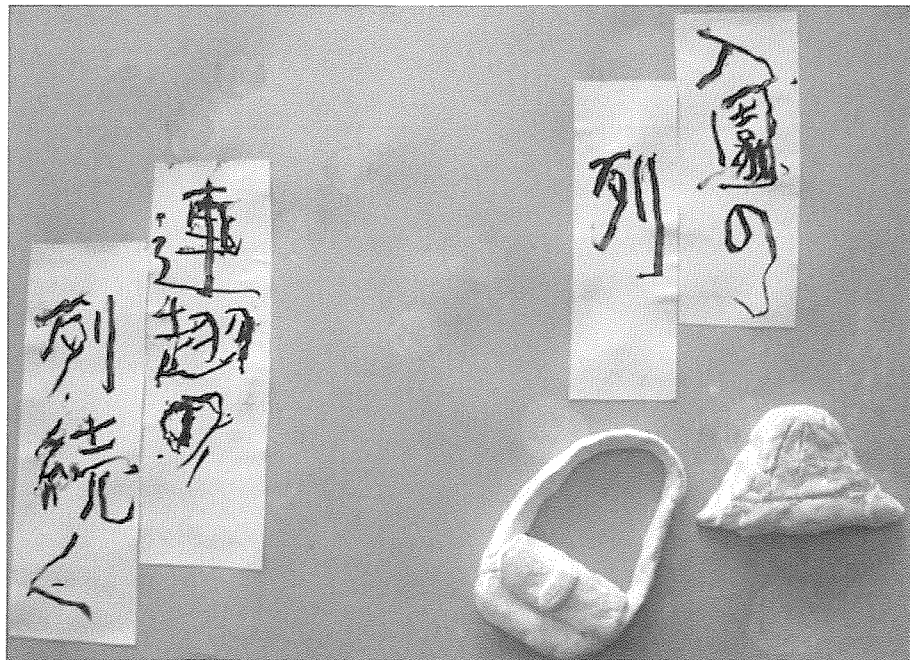 入園の
列
連翹の
列続く